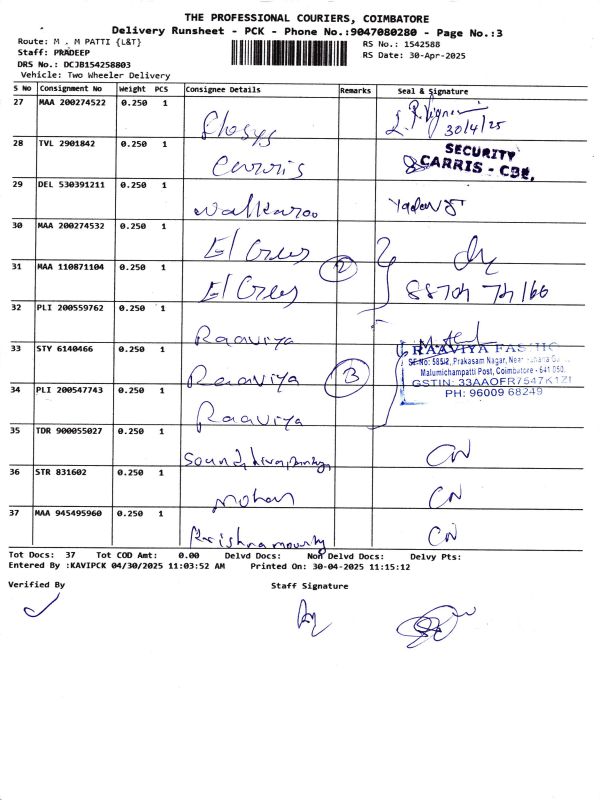 THE PROFESSIONAL COURIERS, COIMBATORE
Delivery Runsheet - PCK - Phone No.:9047080280 - Page No.:3
Route: M . M PATTI {L&T}
RS No.: 1542588
Staff: PRADEEP
RS Date: 30-Apr-2025
DRS No.: DCJB154258803
Vehicle: Two Wheeler Delivery
S No Consignment No Weight PCS Consignee Details Remarks Seal & Signature
27 MAA 200274522 0.250 1 Flosys
30/4/25
28 TVL 2901842 0.250 1 Carris SECURITY
CARRIS - CBE.
29 DEL 530391211 0.250 1 Walkaroo
30 MAA 200274532 0.250 1 El Grees
2
31 MAA 110871104 0.250 1 El Grees
32 PLI 200559762 0.250 1 Raaviya
33 STY 6140466 0.250 1 Raaviya 3
RAAVIYA FASHIO
SF.No: 585/2, Prakasam Nagar, Near
Malumichampatti Post, Coimbatore - 641 050.
GSTIN: 33AAOFR7547K1ZI
PH: 96009 68249
34 PLI 200547743 0.250 1 Raaviya
35 TDR 900055027 0.250 1 CN
36 STR 831602 0.250 1 Mohan CN
37 MAA 945495960 0.250 1 Krishnamourthy CN
Tot Docs: 37 Tot COD Amt: 0.00 Delvd Docs: Non Delvd Docs: Delvy Pts:
Entered By :KAVIPCK 04/30/2025 11:03:52 AM Printed On: 30-04-2025 11:15:12
Verified By Staff Signature